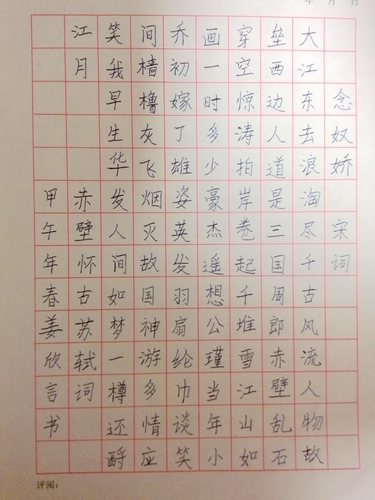 月 日
念奴娇 宋词
大江东去浪淘尽千古风流人物故
垒西边人道是三国周郎赤壁乱石
穿空惊涛拍岸卷起千堆雪江山如
画一时多少豪杰遥想公瑾当年小
乔初嫁了雄姿英发羽扇纶巾谈笑
间樯橹灰飞烟灭故国神游多情应
笑我早生华发人间如梦一樽还酹
江月 赤壁怀古苏轼词
甲午年春姜欣言书
评阅：